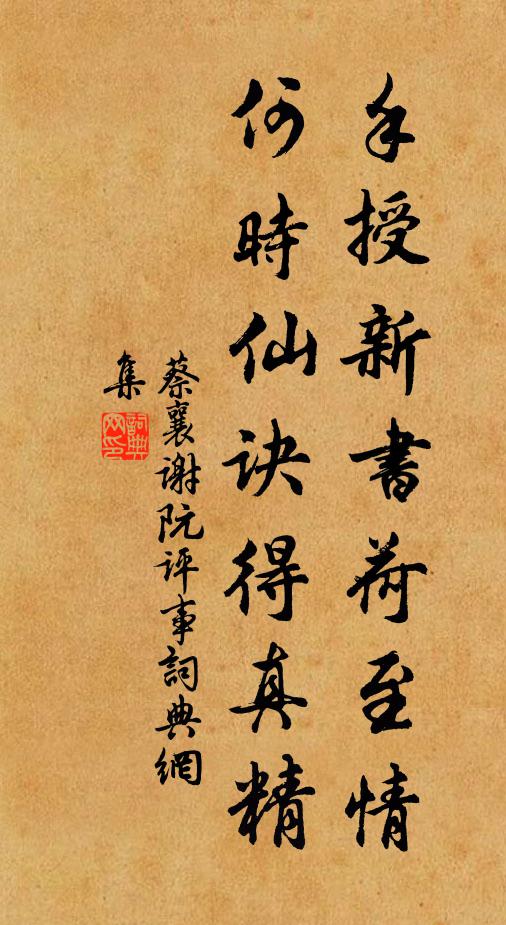 手授新書荷至情
何時仙訣得真精
蔡襄谢阮评事詞典網
集
詞典
网印